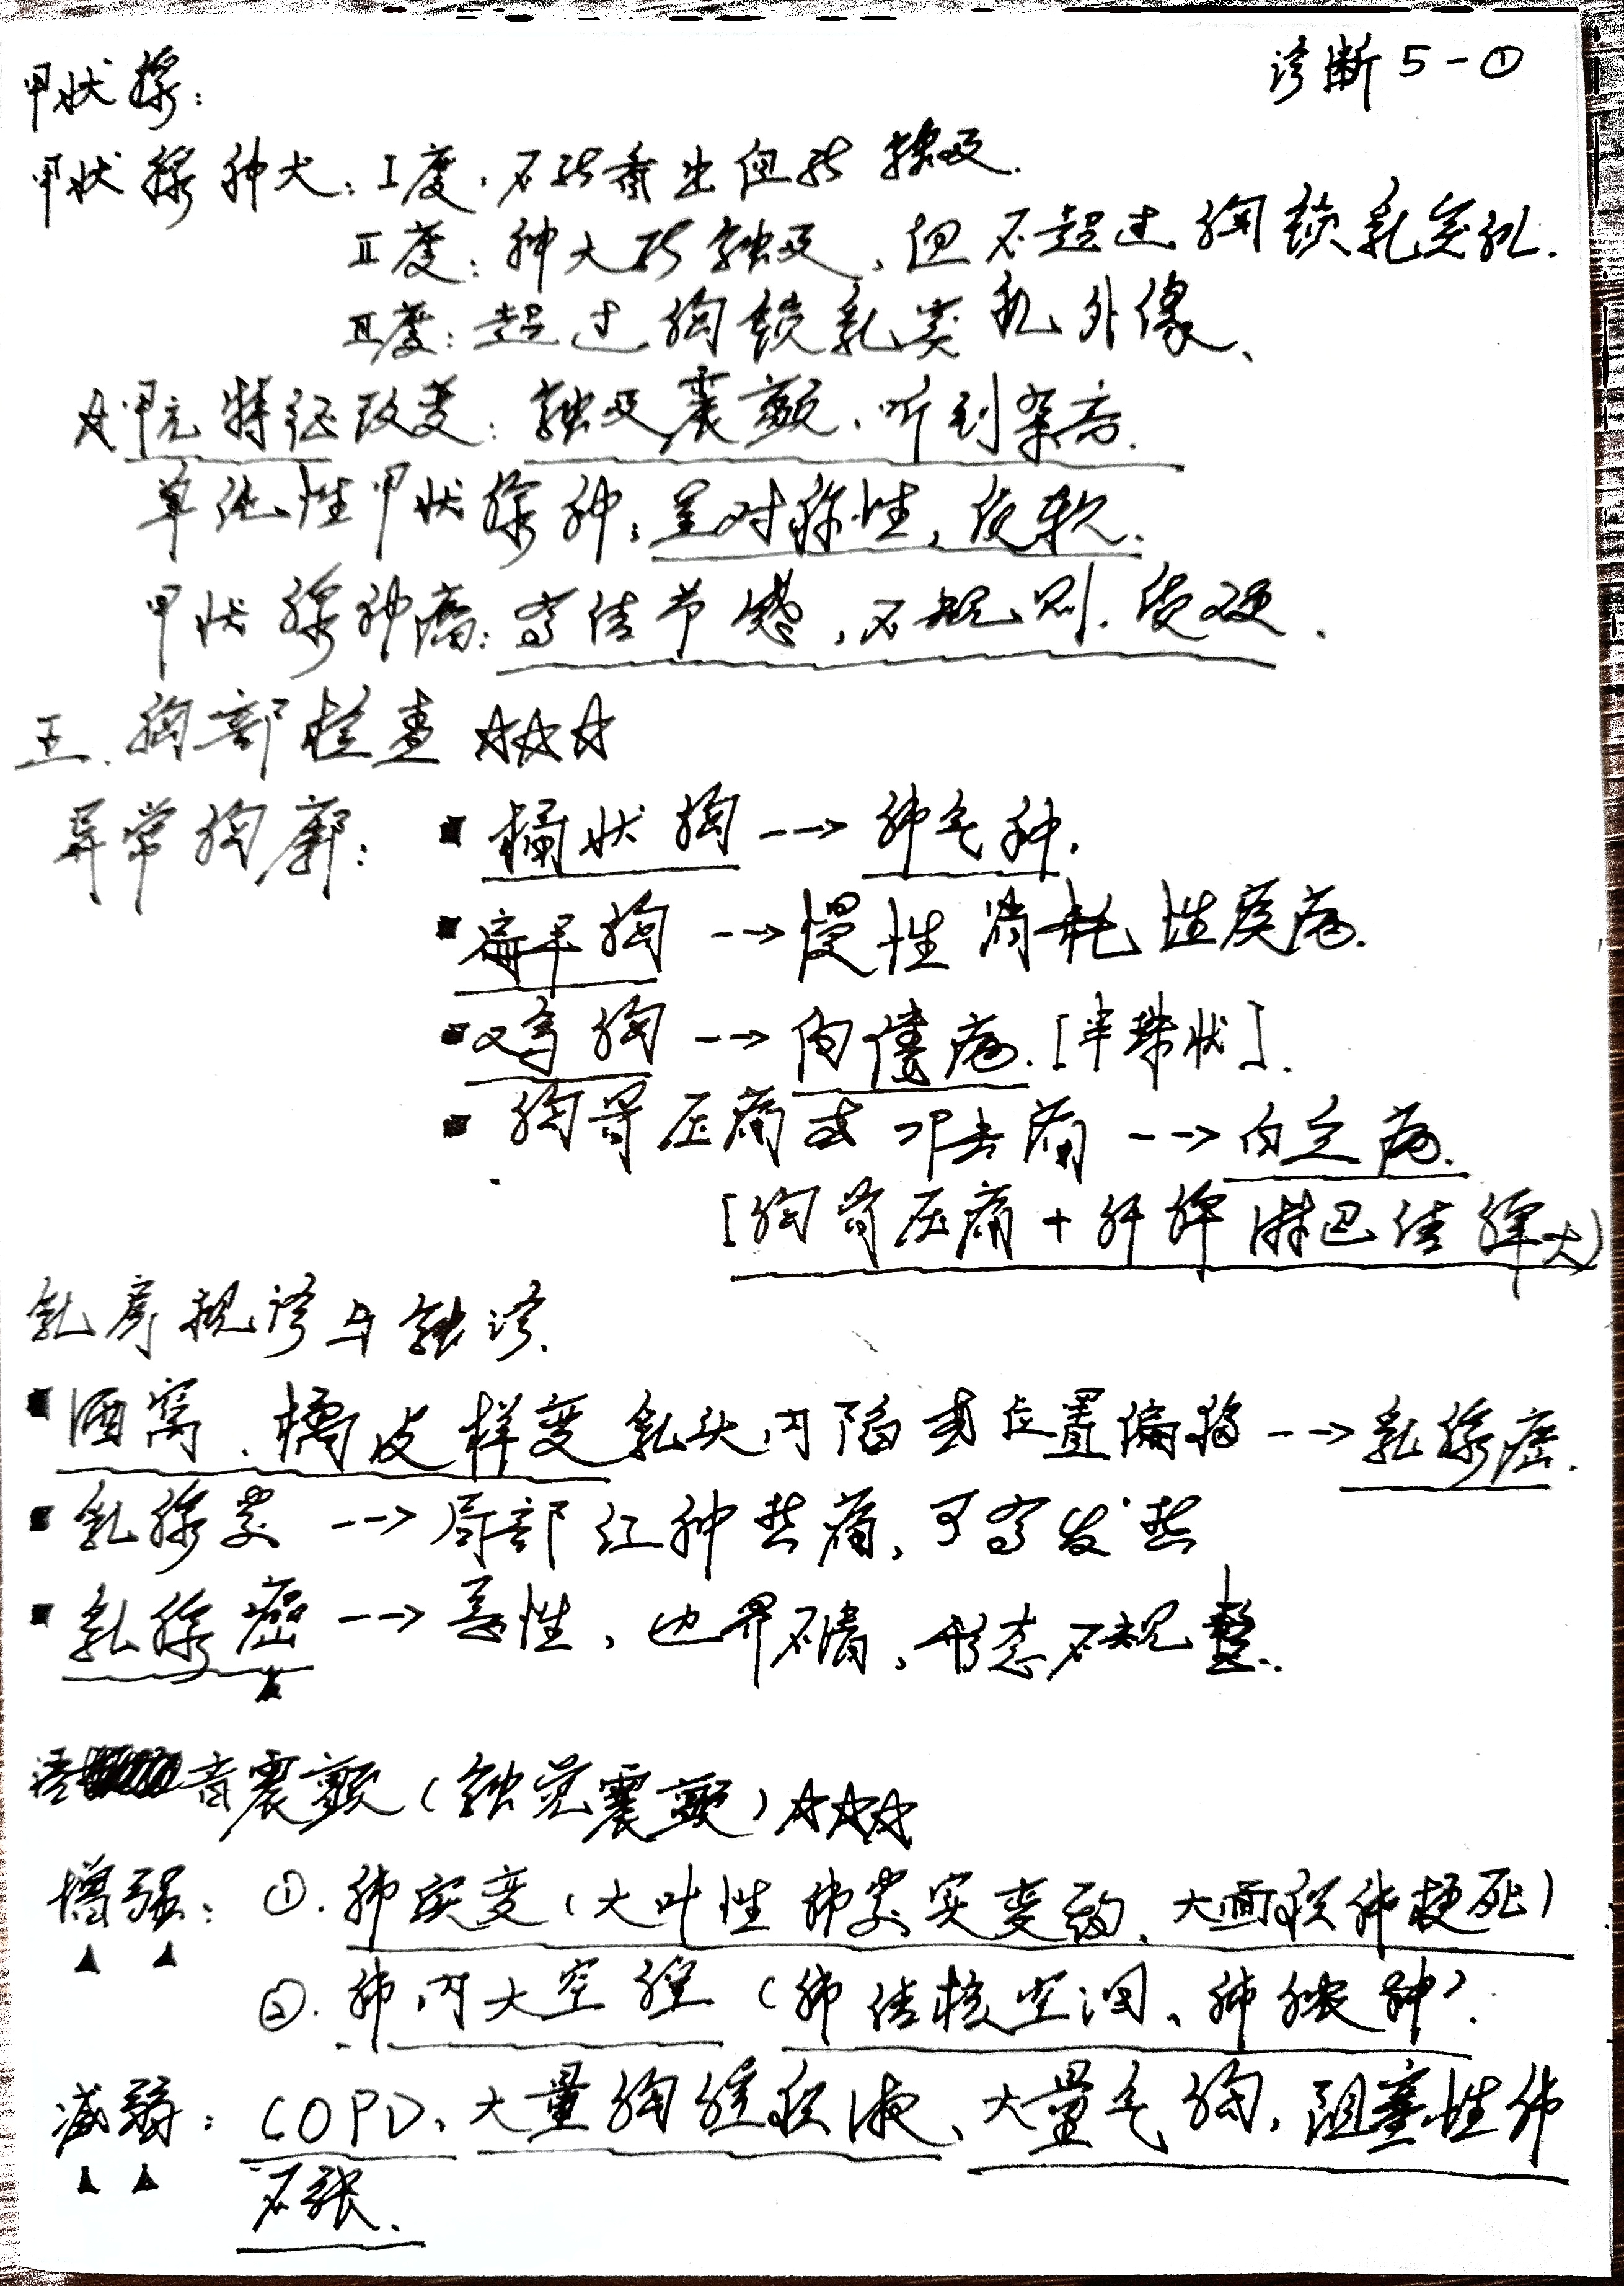 诊断5-①
甲状腺:
甲状腺肿大: I度、不能看出但能触及.
II度: 肿大能触及、但不超过胸锁乳突肌.
III度: 超过胸锁乳突肌外缘、
☆甲亢特征改变: 触及震颤、听到杂音.
单纯性甲状腺肿: 呈对称性, 质软.
甲状腺肿瘤: 有结节感, 不规则. 质硬.
五. 胸部检查 ☆☆☆
异常胸廓: ▪桶状胸 --→ 肺气肿.
▪扁平胸 --→ 慢性消耗性疾病.
▪鸡胸 --→ 佝偻病. [串珠状].
▪胸骨压痛或叩击痛 --→ 白血病.
[胸骨压痛 + 肝脾淋巴结肿大]
乳房视诊与触诊.
▪酒窝、橘皮样变 乳头内陷或位置偏移 --→ 乳腺癌.
▪乳腺炎 --→ 局部红肿热痛, 可有发热
▪乳腺癌 --→ 恶性, 边界不清, 形态不规整.
语音震颤 (触觉震颤) ☆☆☆
增强: ①. 肺实变 (大叶性肺炎实变期、大面积肺梗死)
②. 肺内大空腔 (肺结核空洞、肺脓肿).
减弱: COPD、大量胸腔积液、大量气胸, 阻塞性肺
不张.